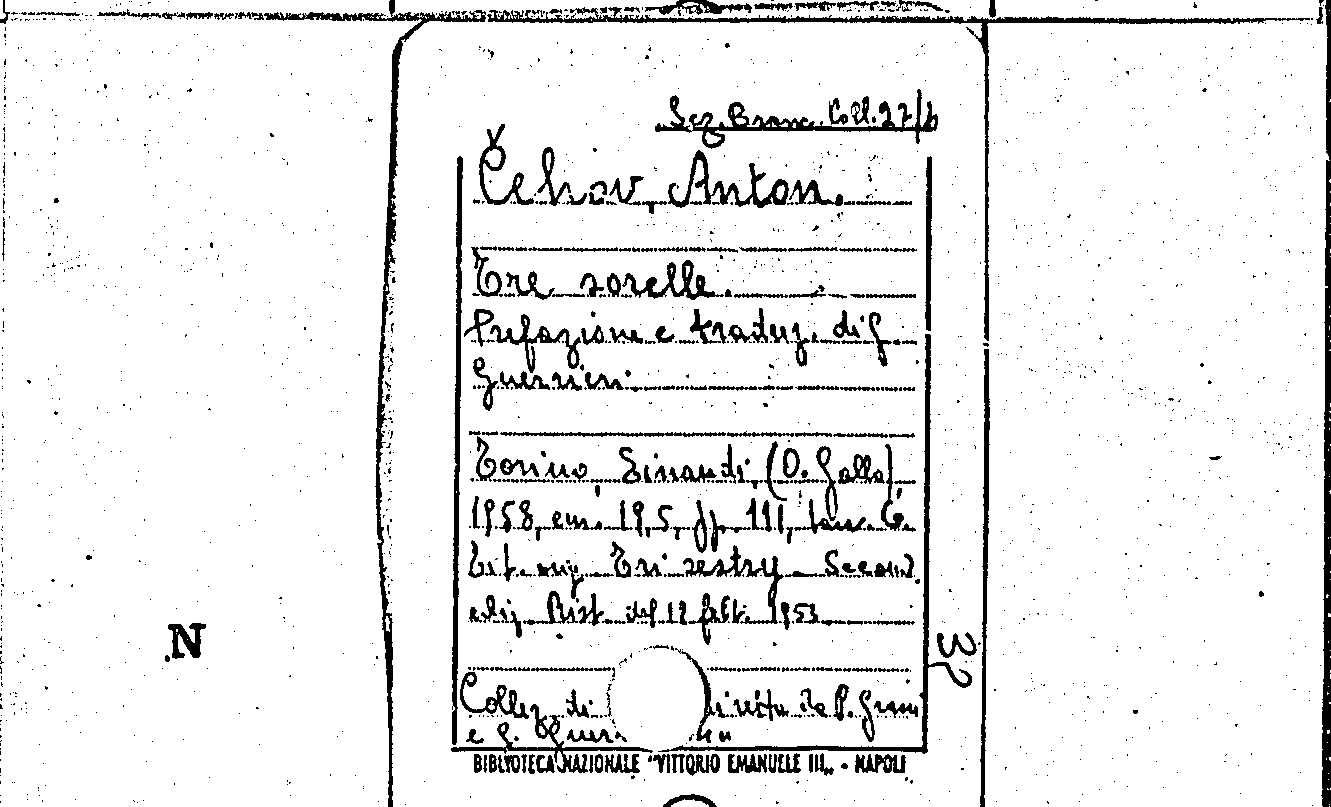 Sez. Branc. Coll. 27/6
Čehov, Anton.
Tre sorelle.
Prefazione e traduz. di G.
Guerrieri.
Torino, Einaudi, (O. Gallo),
1958, cm. 19,5, pp. 111, tavv. 6.
Tit. orig. Tri sestry. Second.
ediz. Rist. del 12 febb. 1953.
Collez. di diretta da P. Grassi
e G. Guerr
BIBLIOTECA NAZIONALE "VITTORIO EMANUELE III„ - NAPOLI
N
32